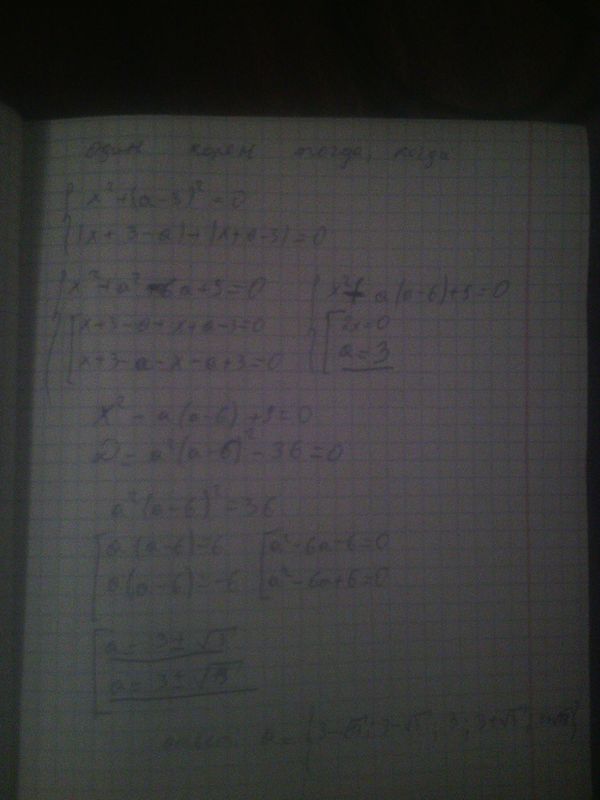 один корень тогда, когда
x²+(a-3)²=0
|x+3-a|+|x+a-3|=0
x²+a²-6a+9=0
x+3-a+x+a-3=0
x+3-a-x-a+3=0
a(a-6)+9=0
2x=0
a=3
x²-a(a-6)+9=0
D=a²(a-6)²-36=0
a²(a-6)²=36
a(a-6)=6
a(a-6)=-6
a²-6a-6=0
a²-6a+6=0
a=3±√
a=3±√
a=